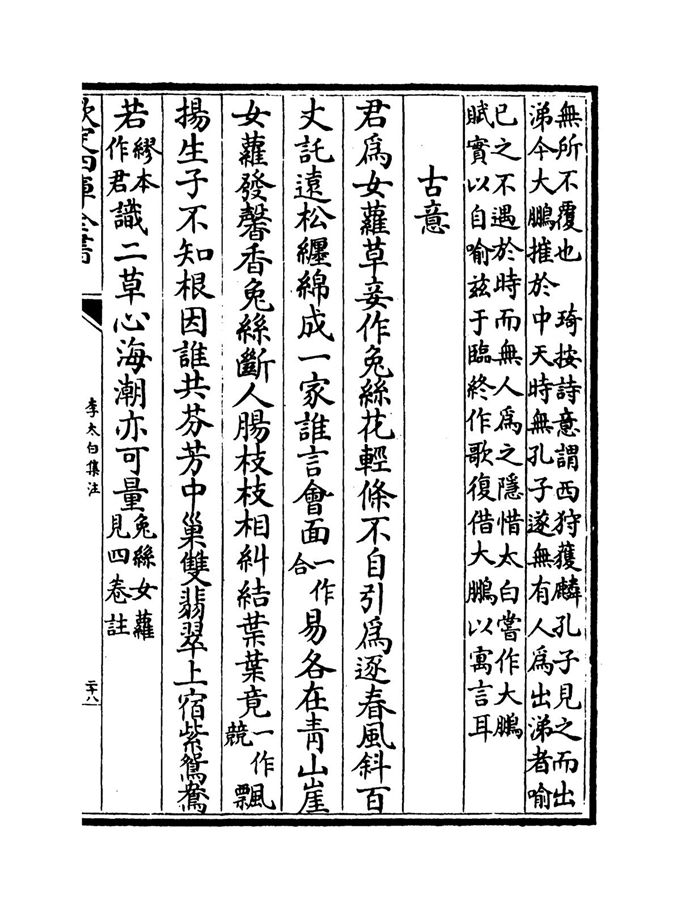 無所不覆也　琦按詩意謂西狩獲麟孔子見之而出
涕今大鵬摧於中天時無孔子遂無有人為出涕者喻
已之不遇於時而無人為之隱惜太白嘗作大鵬
賦實以自喻兹于臨終作歌復借大鵬以寓言耳
古意
君為女蘿草妾作兔絲花輕條不自引為逐春風斜百
丈託遠松纒綿成一家誰言會面一作合易各在青山崖
女蘿發馨香兔絲斷人腸枝枝相糾結葉葉竟一作競飄
揚生子不知根因誰共芬芳中巢雙翡翠上宿紫鴛鴦
若繆本作君識二草心海潮亦可量兔絲女蘿見四卷註
欽定四庫全書
李太白集注
二十八